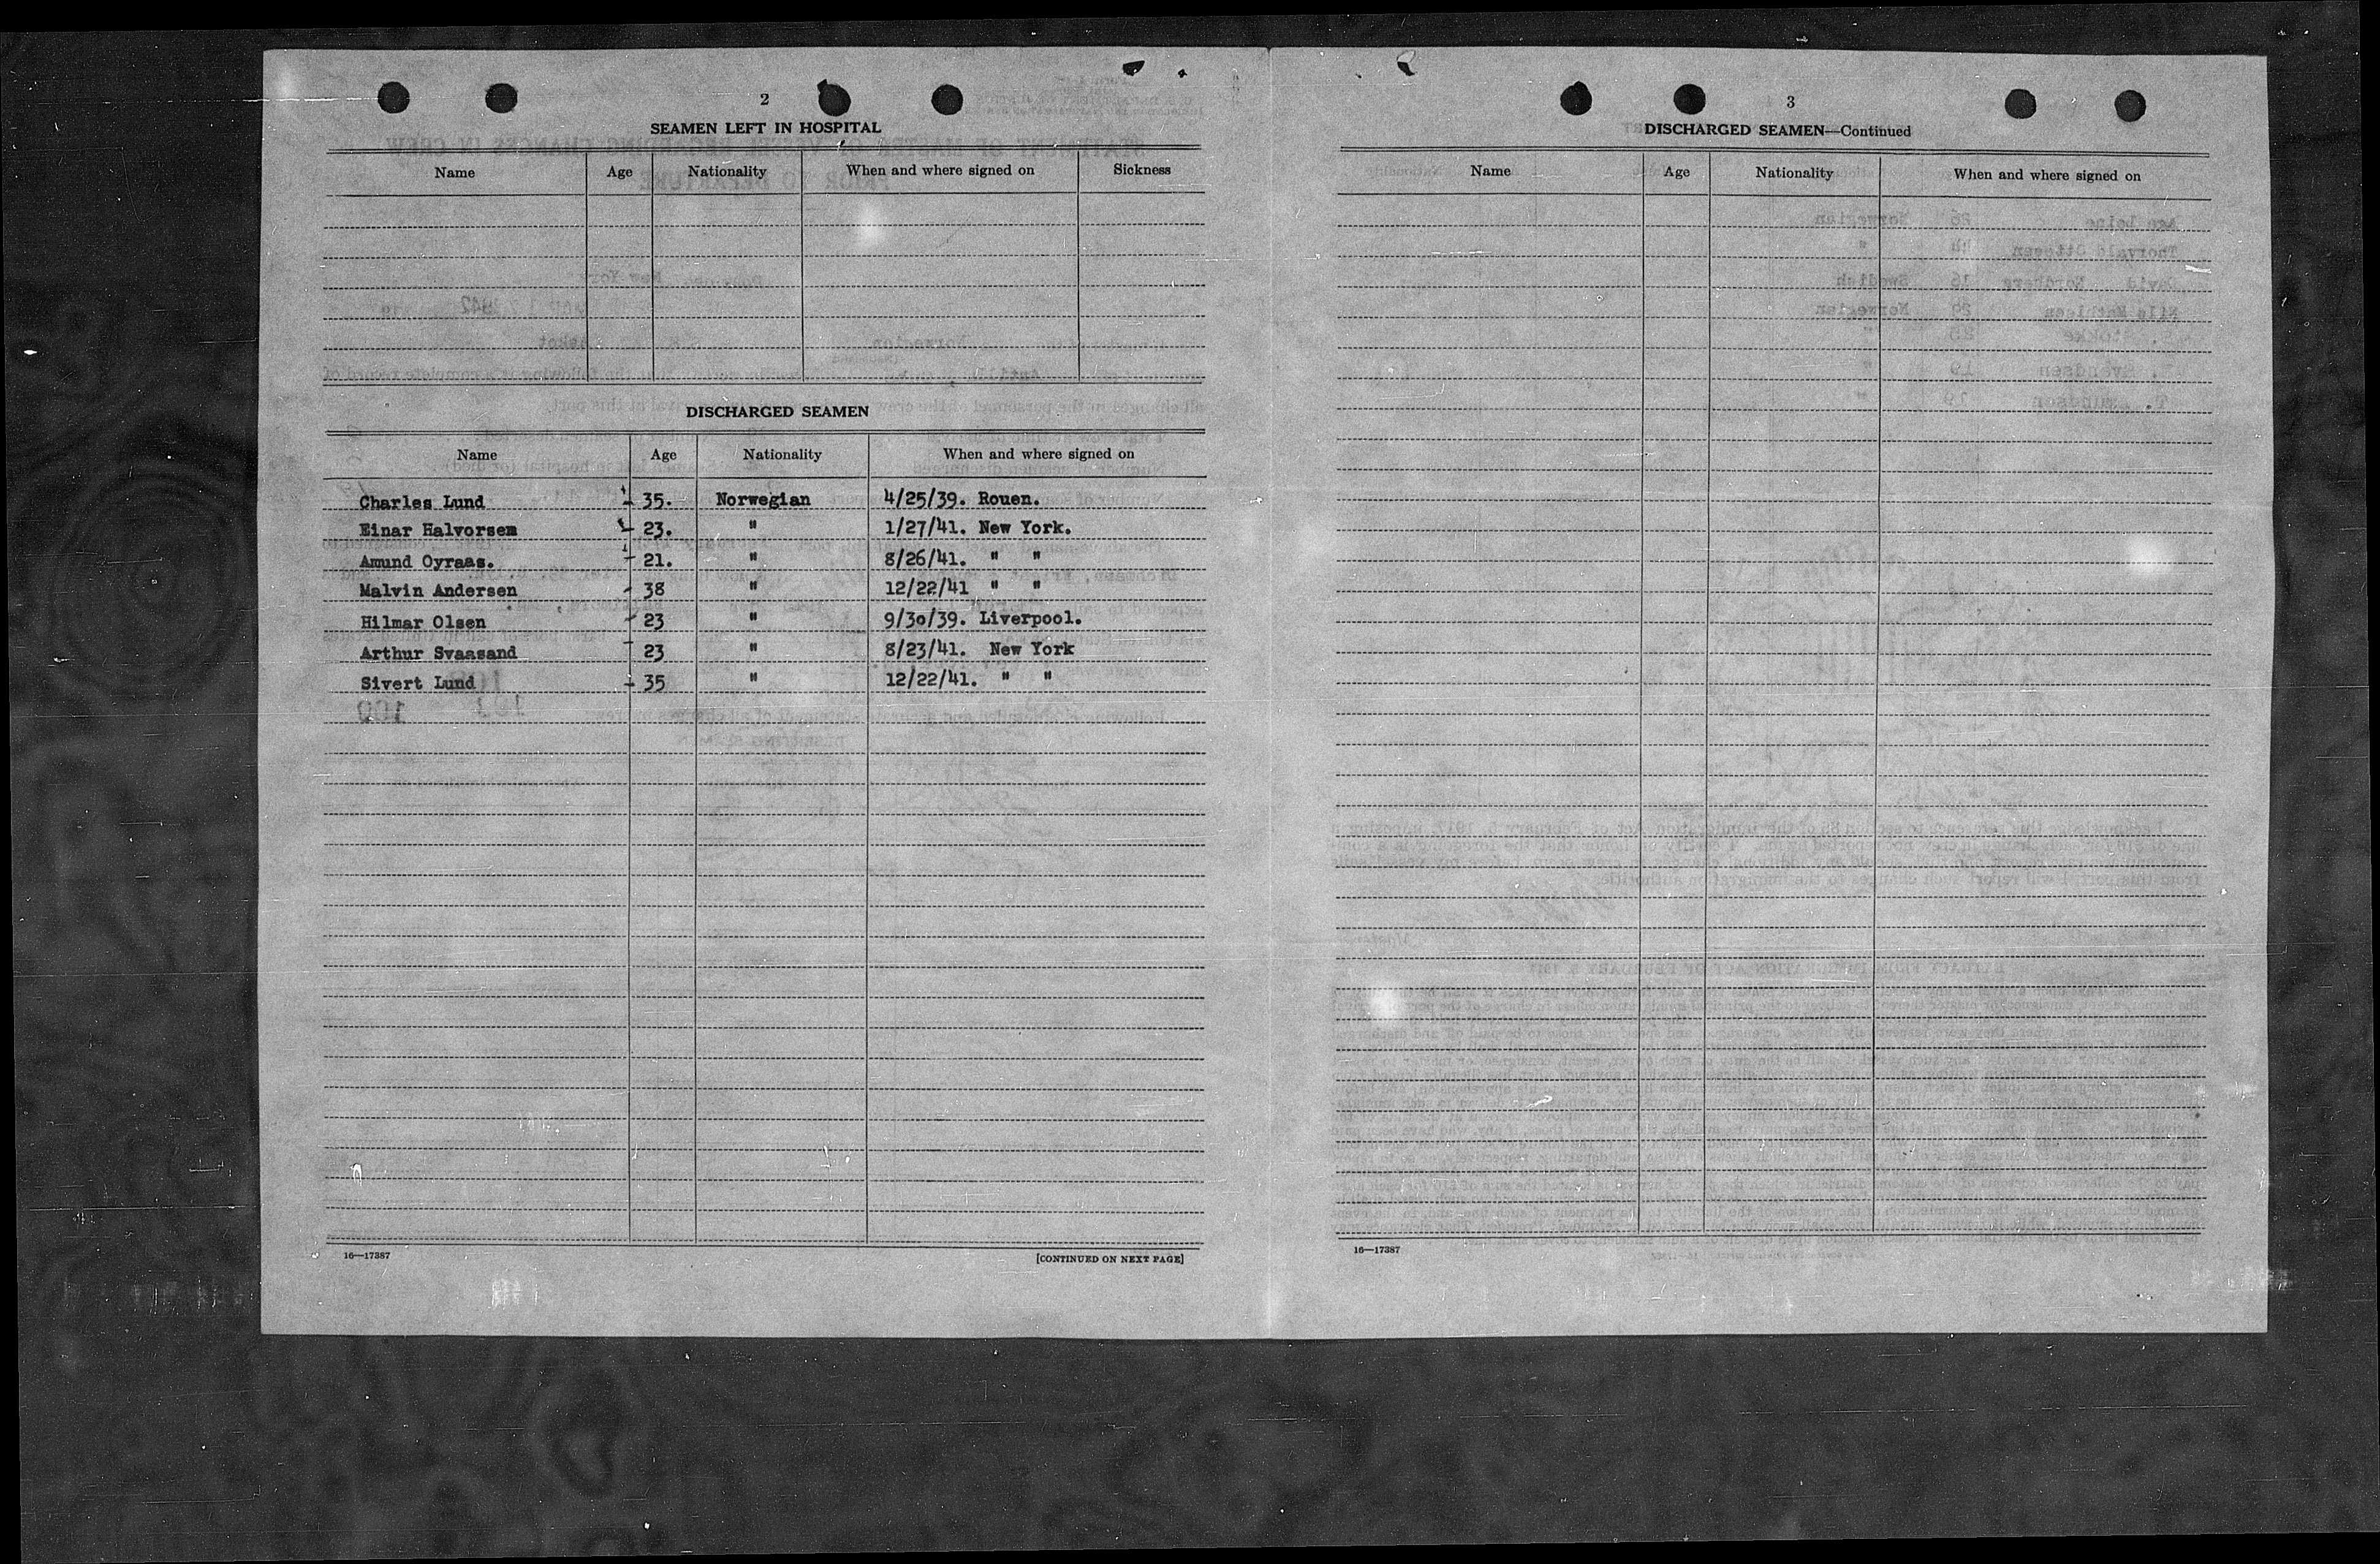 2
SEAMEN LEFT IN HOSPITAL
Name Age Nationality When and where signed on Sickness
DISCHARGED SEAMEN
Name Age Nationality When and where signed on
Charles Lund 35. Norwegian 4/25/39. Rouen.
Einar Halvorsen 23. " 1/27/41. New York.
Amund Oyraas. 21. " 8/26/41. " "
Malvin Andersen 38 " 12/22/41 " "
Hilmar Olsen 23 " 9/30/39. Liverpool.
Arthur Svaasand 23 " 8/23/41. New York
Sivert Lund 35 " 12/22/41. " "
16—17387
[CONTINUED ON NEXT PAGE]
3
DISCHARGED SEAMEN—Continued
Name Age Nationality When and where signed on
16—17387